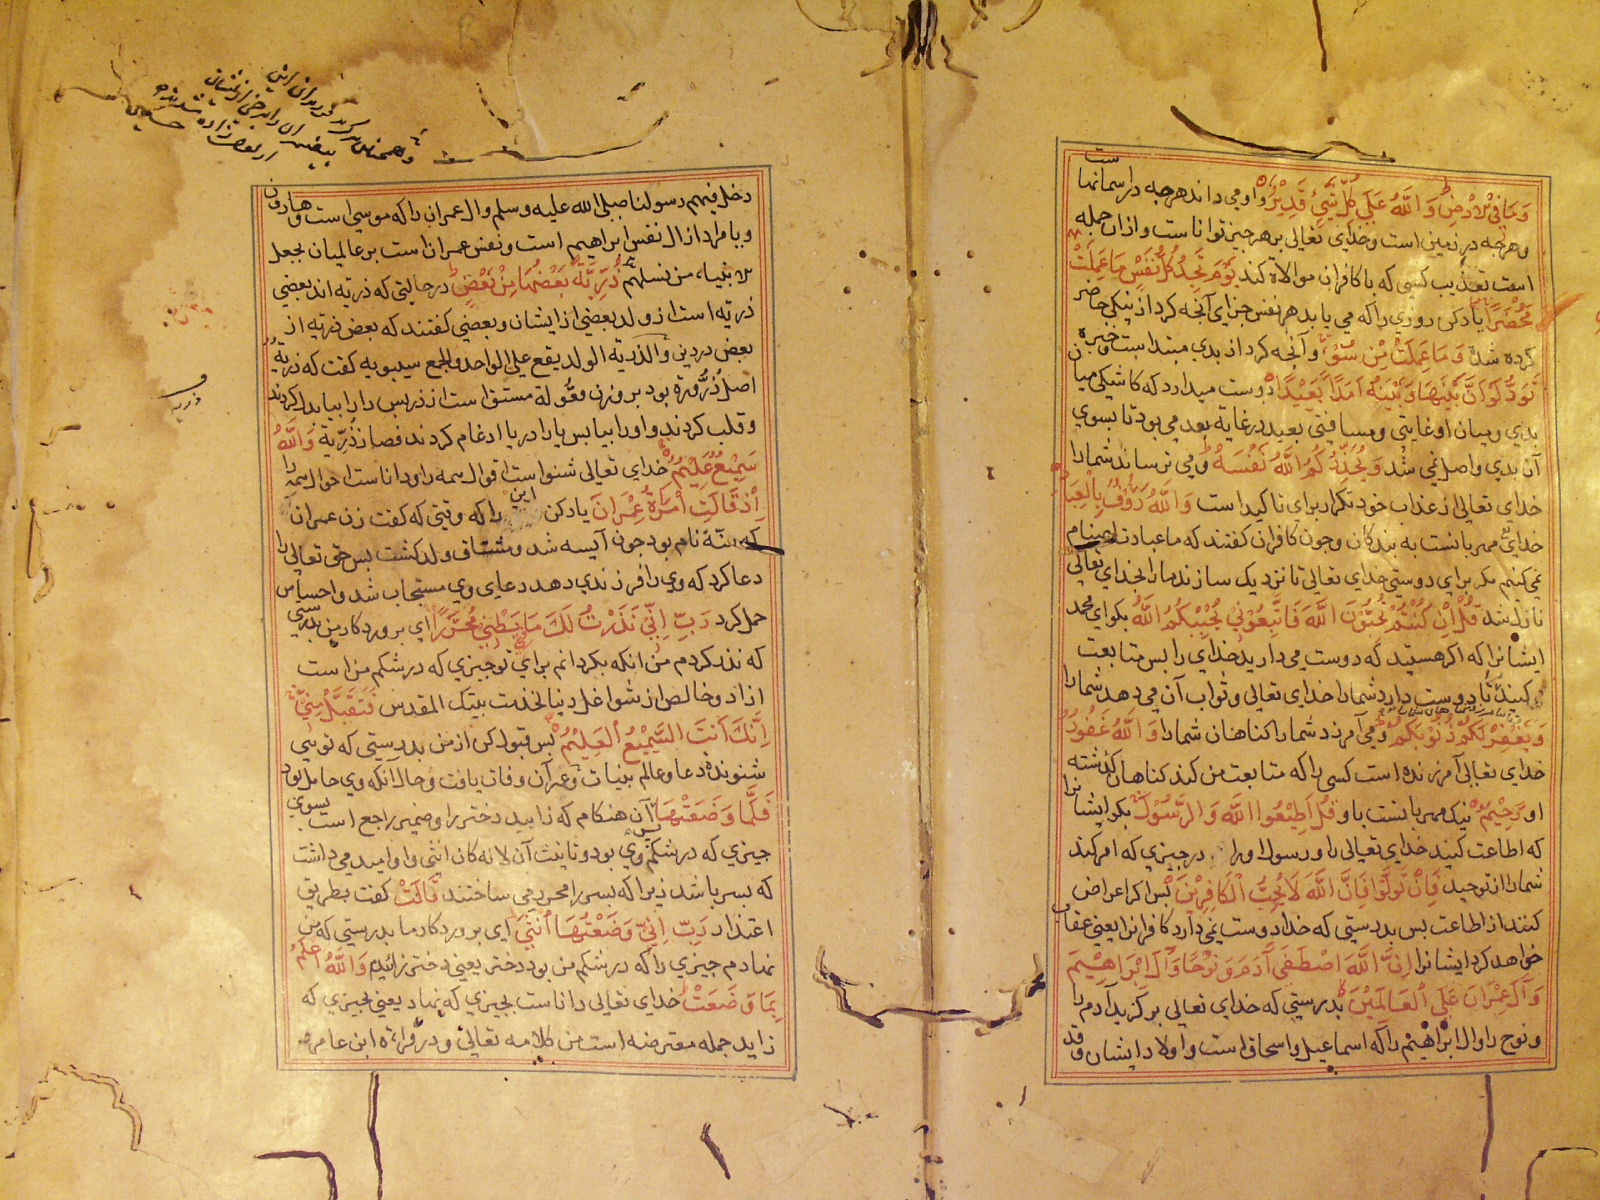 وَمَا فِي الْاَرْضِ وَاللّٰهُ عَلٰي كُلِّ شَيْءٍ قَدِيْرٌ واو مي داند هر چه در آسمانها ست
و هر چه در زمين است و خداي تعالي بر هر چيز تواناست و از ان جمله
است تعذيب كسي كه با كافران موالاة كند يَوْمَ تَجِدُ كُلُّ نَفْسٍ مَا عَمِلَتْ مِنْ خَيْرٍ
مُحْضَرًا ياد كن روزي را كه مي يابد هر نفس جزاي آنچه كرد از نيكي حاضر
كرده شده وَمَا عَمِلَتْ مِنْ سُوْءٍ و آنچه كرد از بدي مبتداست و خبره
تَوَدُّ لَوْ اَنَّ بَيْنَهَا وَبَيْنَهُ اَمَدًا بَعِيْدًا دوست ميدارد كه كاشكي ميان
بدي و ميان او غايتي و مسافتي بعيد در غاية بعد مي بود تا بسوي
آن بدي واصل نمي شد وَيُحَذِّرُكُمُ اللّٰهُ نَفْسَهُ و مي ترساند شما را
خداي تعالي از عذاب خود تكرار براي تاكيد است وَاللّٰهُ رَؤُفٌ بِالْعِبَادِ
خداي مهربانست به بندكان و چون كافران كفتند كه ما عبادت اصنام
نمي كنيم مكر براي دوستي خداي تعالي تا نزديك سازند ما را بخداي تعالي
نازل شد قُلْ اِنْ كُنْتُمْ تُحِبُّوْنَ اللّٰهَ فَاتَّبِعُوْنِيْ يُحْبِبْكُمُ اللّٰهُ بكو اي محمد
ايشانرا كه اكر هستيد كه دوست مي داريد خداي را پس متابعت
كنيد تا دوست دارد شما را خداي تعالي و ثواب آن مي دهد شما را
وَيَغْفِرْ لَكُمْ ذُنُوْبَكُمْ و مي آمرزد شما را كناهان شما را وَاللّٰهُ غَفُوْرٌ
خداي تعالي آمرزنده است كسي را كه متابعت من كند كناهان كذشته
او رَحِيْمٌ نيك مهربانست باو قُلْ اَطِيْعُوا اللّٰهَ وَالرَّسُوْلَ بكو ايشانرا
كه اطاعت كنيد خداي تعالي را و رسول او را در چيزي كه امر كند
شما را از توحيد فَاِنْ تَوَلَّوْا فَاِنَّ اللّٰهَ لَا يُحِبُّ الْكَافِرِيْنَ پس اكر اعراض
كنند از اطاعت پس بدرستي كه خدا دوست نمي دارد كافرانرا يعني عقاب
خواهد كرد ايشانرا اِنَّ اللّٰهَ اصْطَفَى آدَمَ وَنُوْحًا وَآلَ اِبْرَاهِيْمَ
وَآلَ عِمْرَانَ عَلَى الْعَالَمِيْنَ بدرستي كه خداي تعالي بركزيد آدم را
و نوح را و ال ابراهيم را كه اسماعيل و اسحاق است و اولاد ايشان وقد
دخل فيهم رسولنا صلي الله عليه وسلم و ال عمران را كه موسي است و هارون
و يا مراد از ال نفس ابراهيم است و نفس عمران است بر عالميان بجعل
الانبياء من نسلهم ذُرِّيَّةً بَعْضُهَا مِنْ بَعْضٍ در حالتي كه ذرية اند بعضي
ذرية است از ولد بعضي از ايشان و بعضي كفتند كه بعض ذرية از
بعض در دين والذرية الولد يقع علي الواحد والجمع سيبويه كفت كه ذرية
اصل ذرورة بود بر وزن فعولة مشتق است از ذر پس را را بيا بدل كردند
و قلب كردند واو را بيا پس يا را در يا ادغام كردند فصار ذرية وَاللّٰهُ
سَمِيْعٌ عَلِيْمٌ خداي تعالي شنواست اقوال همه را و داناست احوال همه را
اِذْ قَالَتِ امْرَاَةُ عِمْرَانَ ياد كن اين را كه وقتي كه كفت زن عمران
كه حنة نام بود چون آيسه شد و مشتاق ولد كشت پس حق تعالي را
دعا كرد كه وي را فرزندي دهد دعاي وي مستجاب شد و احساس
حمل كرد رَبِّ اِنِّيْ نَذَرْتُ لَكَ مَا فِيْ بَطْنِيْ مُحَرَّرًا اي پروردكار من بدرستي
كه نذر كردم من انكه بكردانم براي تو چيزي كه در شكم من است
ازاد و خالص از شواغل دنيا لخدمت بيتك المقدس فَتَقَبَّلْ مِنِّيْ
اِنَّكَ اَنْتَ السَّمِيْعُ الْعَلِيْمُ پس قبول كن از من بدرستي كه تويي
شنونده دعا و عالم بنيات و عمران وفات يافت و حال آنكه وي حامل بود
فَلَمَّا وَضَعَتْهَا آن هنكام كه زاييد دختر را و ضمير راجع است بسوي
چيزي كه در شكم وي بود و تانيث آن لانه كان انثي و او اميد مي داشت
كه پسر باشد زيرا كه پسر را محرر مي ساختند قَالَتْ كفت بطريق
اعتذار رَبِّ اِنِّيْ وَضَعْتُهَا اُنْثٰى اي پروردكار ما بدرستي كه من
نهادم چيزي را كه در شكم من بود دختر يعني دختر زائيدم وَاللّٰهُ اَعْلَمُ
بِمَا وَضَعَتْ خداي تعالي داناست بچيزي كه نهاد يعني بچيزي كه
زاييد جمله معترضه است من كلامه تعالي و در قراءة ابن عامر